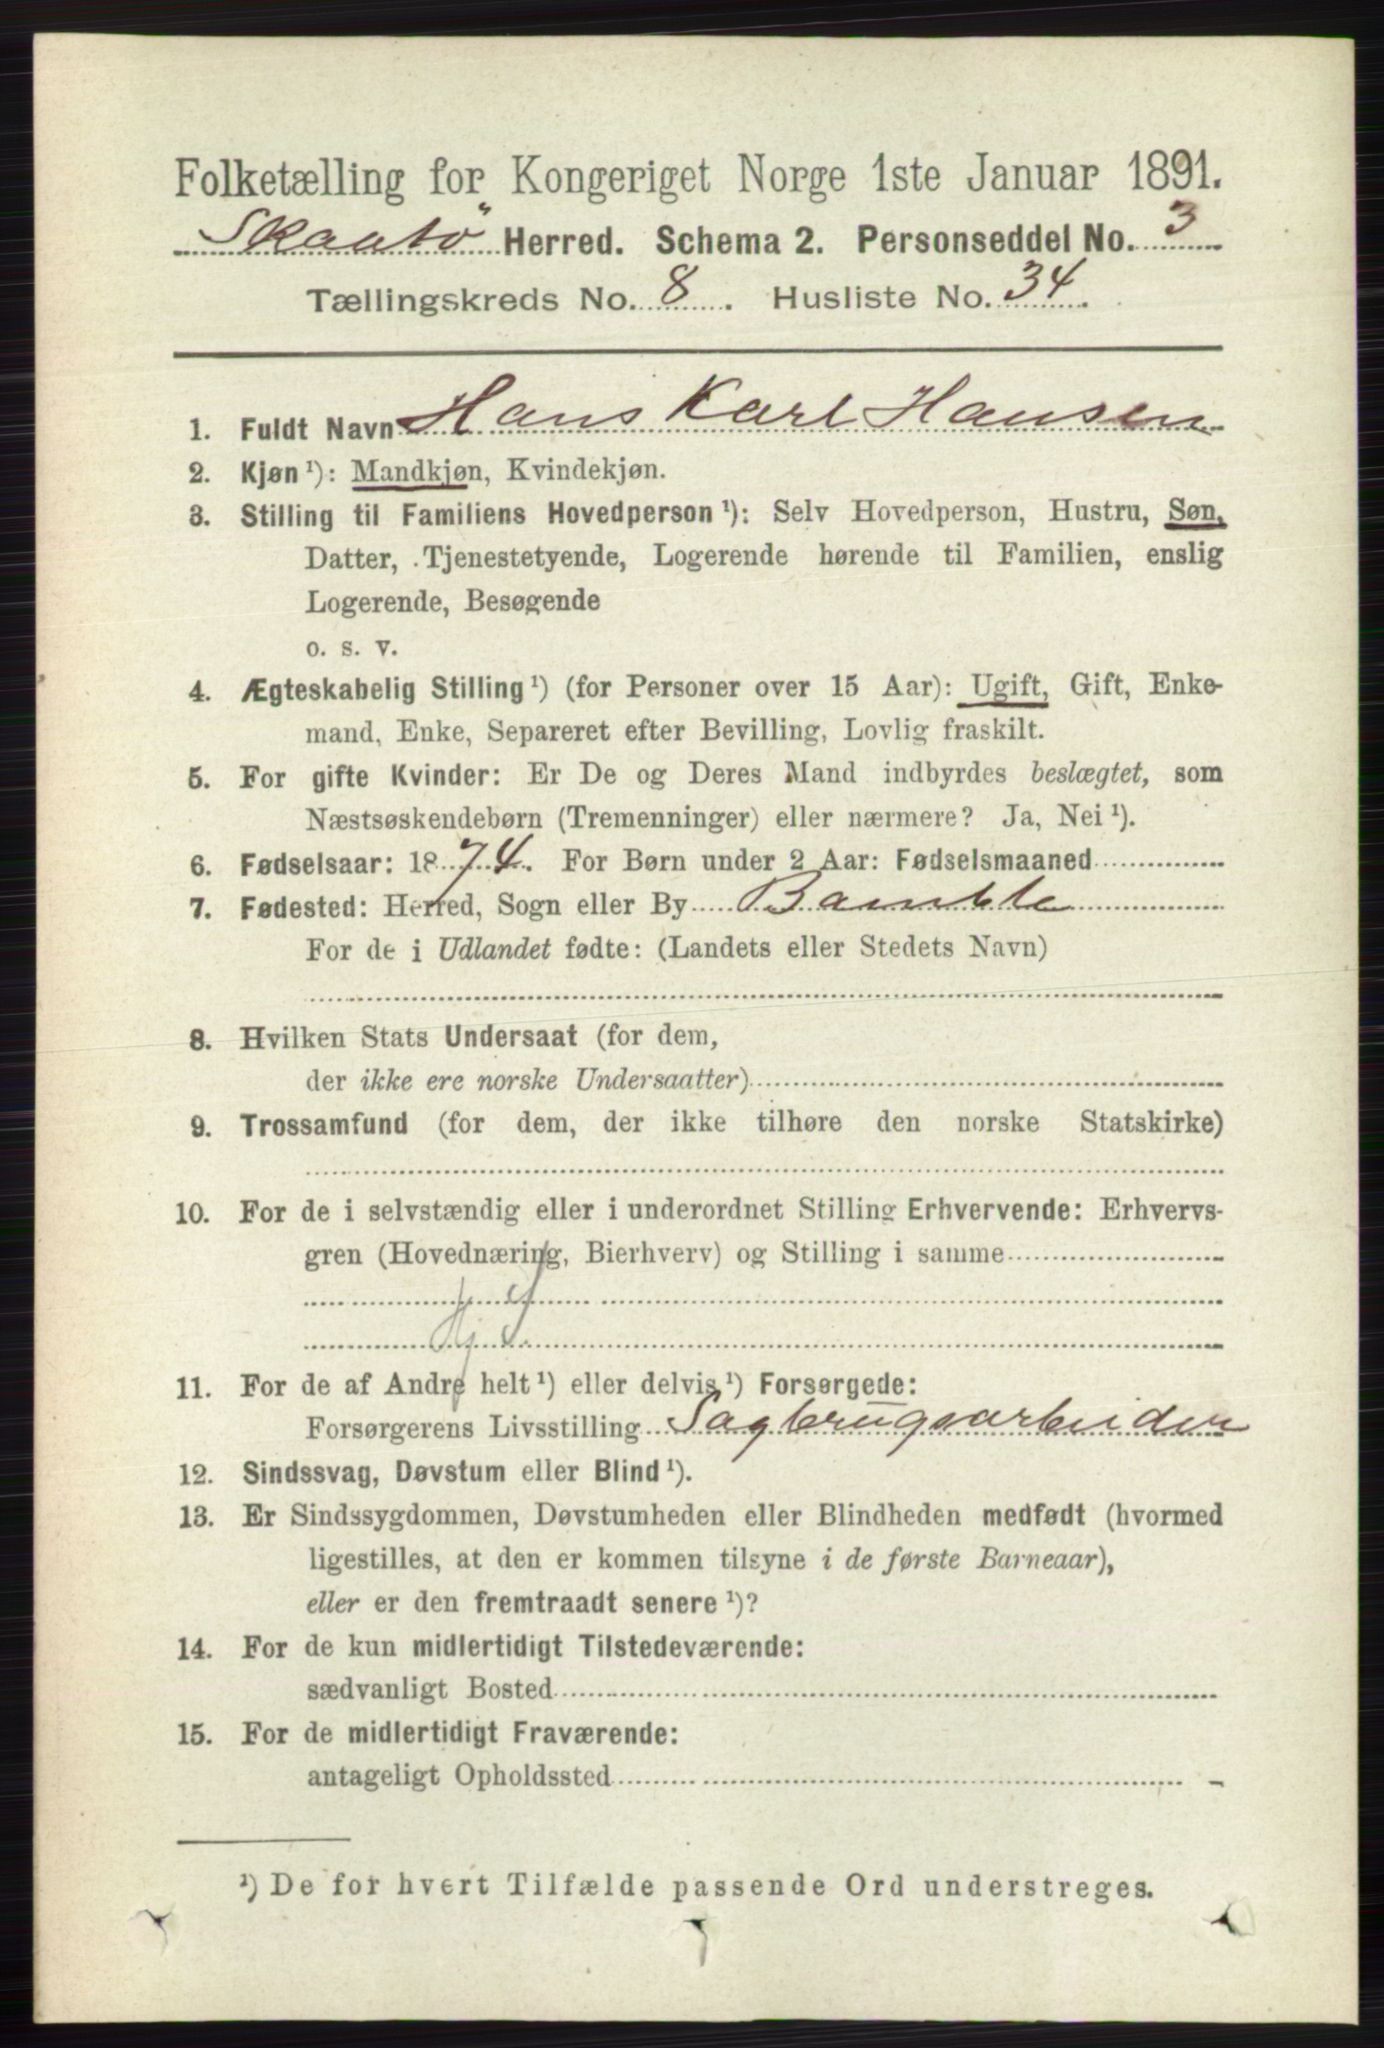 Folketælling for Kongeriget Norge 1ste Januar 1891.
Skaatö Herred. Schema 2. Personseddel No. 3
Tællingskreds No. 8. Husliste No. 34.
1. Fuldt Navn Hans Karl Hansen
2. Kjøn ¹): Mandkjøn, Kvindekjøn.
3. Stilling til Familiens Hovedperson ¹): Selv Hovedperson, Hustru, Søn,
Datter, Tjenestetyende, Logerende hørende til Familien, enslig
Logerende, Besøgende
o. s. v.
4. Ægteskabelig Stilling ¹) (for Personer over 15 Aar): Ugift, Gift, Enke-
mand, Enke, Separeret efter Bevilling, Lovlig fraskilt.
5. For gifte Kvinder: Er De og Deres Mand indbyrdes beslægtet, som
Næstsøskendebørn (Tremenninger) eller nærmere? Ja, Nei ¹).
6. Fødselsaar: 1874. For Børn under 2 Aar: Fødselsmaaned
7. Fødested: Herred, Sogn eller By Bamble
For de i Udlandet fødte: (Landets eller Stedets Navn)
8. Hvilken Stats Undersaat (for dem,
der ikke ere norske Undersaatter)
9. Trossamfund (for dem, der ikke tilhøre den norske Statskirke)
10. For de i selvstændig eller i underordnet Stilling Erhvervende: Erhvervs-
gren (Hovednæring, Bierhverv) og Stilling i samme
11. For de af Andre helt ¹) eller delvis ¹) Forsørgede:
Forsørgerens Livsstilling Sagbrugsarbeider
12. Sindssvag, Døvstum eller Blind ¹).
13. Er Sindssygdommen, Døvstumheden eller Blindheden medfødt (hvormed
ligestilles, at den er kommen tilsyne i de første Barneaar),
eller er den fremtraadt senere ¹)?
14. For de kun midlertidigt Tilstedeværende:
sædvanligt Bosted
15. For de midlertidigt Fraværende:
antageligt Opholdssted
¹) De for hvert Tilfælde passende Ord understreges.